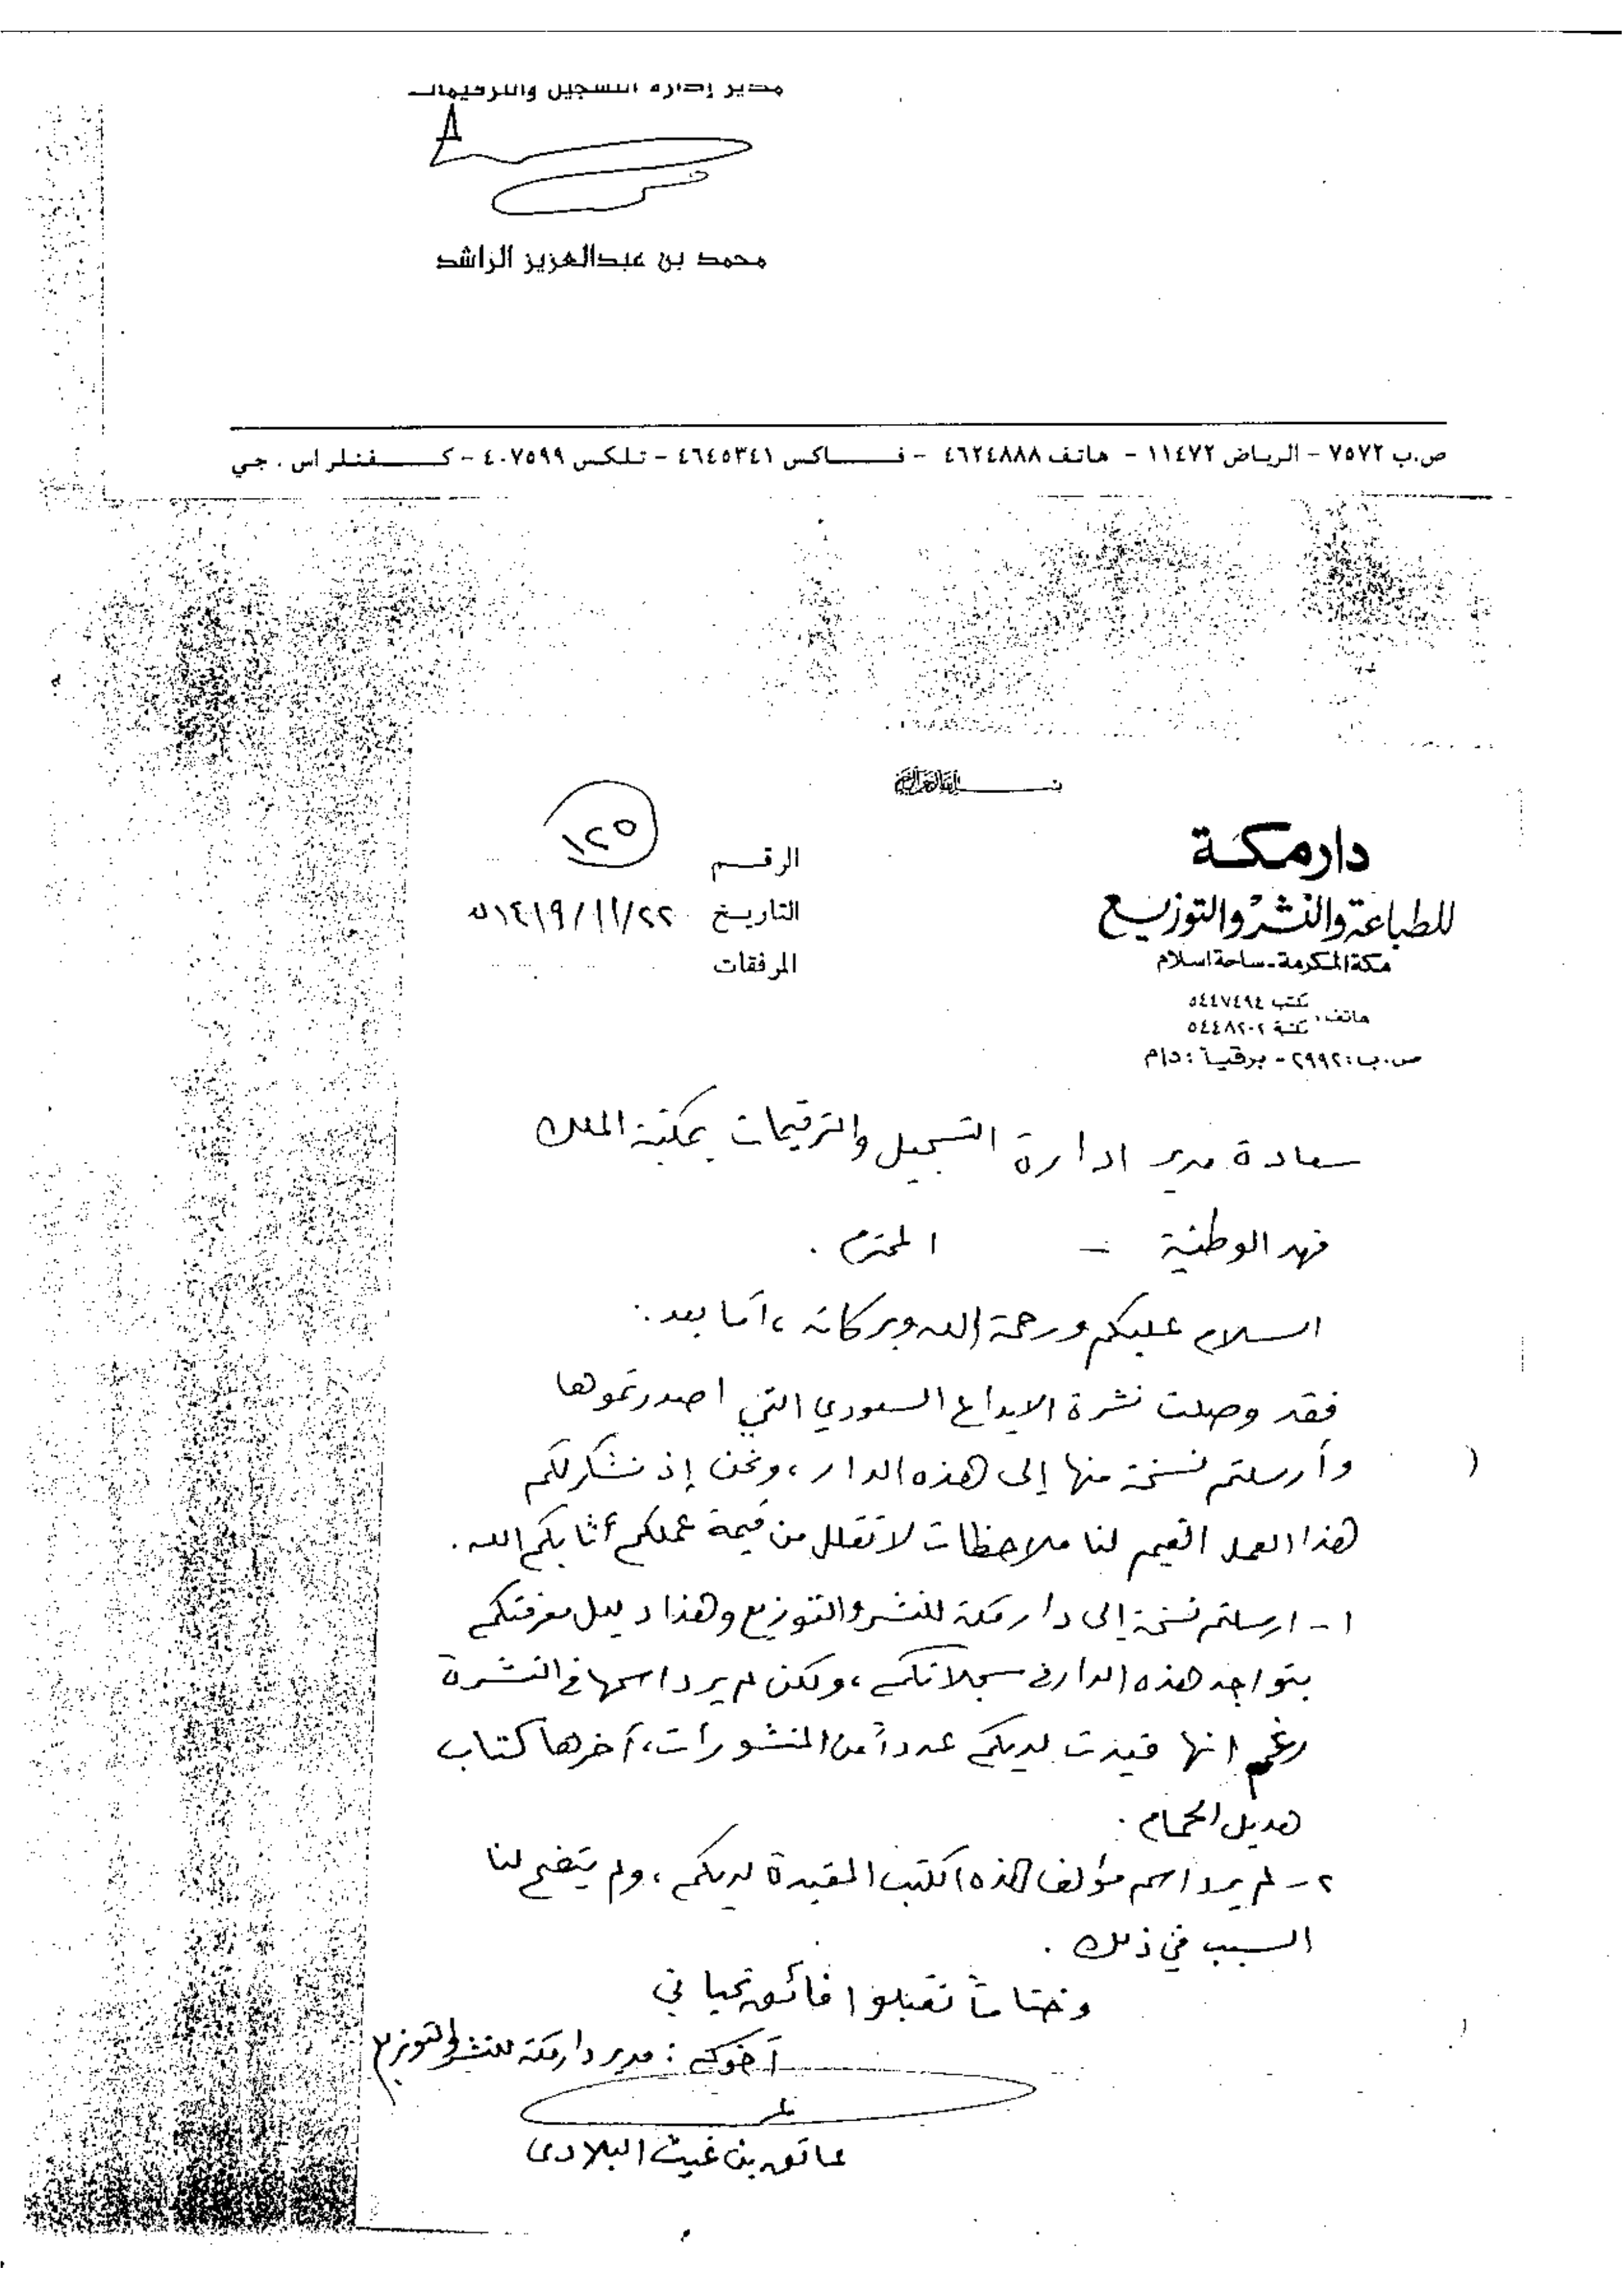 مدير إدارة التسجيل والترقيمات
محمد بن عبدالعزيز الراشد
ص.ب ٧٥٧٢ - الرياض ١١٤٧٢ - هاتف ٤٦٢٤٨٨٨ - فــاكس ٤٦٤٥٣٤١ - تلكس ٤٠٧٥٩٩ - كـفنلر اس . جي
بسم الله الرحمن الرحيم
دار مكة
للطباعة والنشر والتوزيع
مكة المكرمة - ساحة اسلام
هاتف: مكتب ٥٤٤٧٤٩٤
٥٤٤٨٢٠٢
ص.ب: ٢٩٩٢ - برقياً: دام
الرقم ١٢٥
التاريخ ١٤١٩/١١/٢٢هـ
المرفقات
سعادة مدير ادارة التسجيل والترقيمات بمكتبة الملك
فهد الوطنية - المحترم .
السلام عليكم ورحمة الله وبركاته ، أما بعد :
فقد وصلت نشرة الايداع السعودي التي اصدرتموها
وأرسلتم نسخة منها إلى هذه الدار ، ونحن إذ نشكر لكم
هذا العمل القيم لنا ملاحظات لا تقلل من قيمة عملكم أثابكم الله .
١ - ارسلتم نسخة إلى دار مكة للنشر والتوزيع وهذا دليل معرفتكم
بتواجد هذه الدار في سجلاتكم ، ولكن لم يرد اسمها في النشرة
رغم انها قيدت لديكم عدداً من المنشورات ، آخرها كتاب
هديل الحمام .
٢ - لم يرد اسم مؤلف هذه الكتب المقيدة لديكم ، ولم يتضح لنا
السبب في ذلك .
وختاماً تقبلوا فائق تحياتي
أخوكم : مدير دار مكة للنشر والتوزيع
عاتق بن غيث البلادي